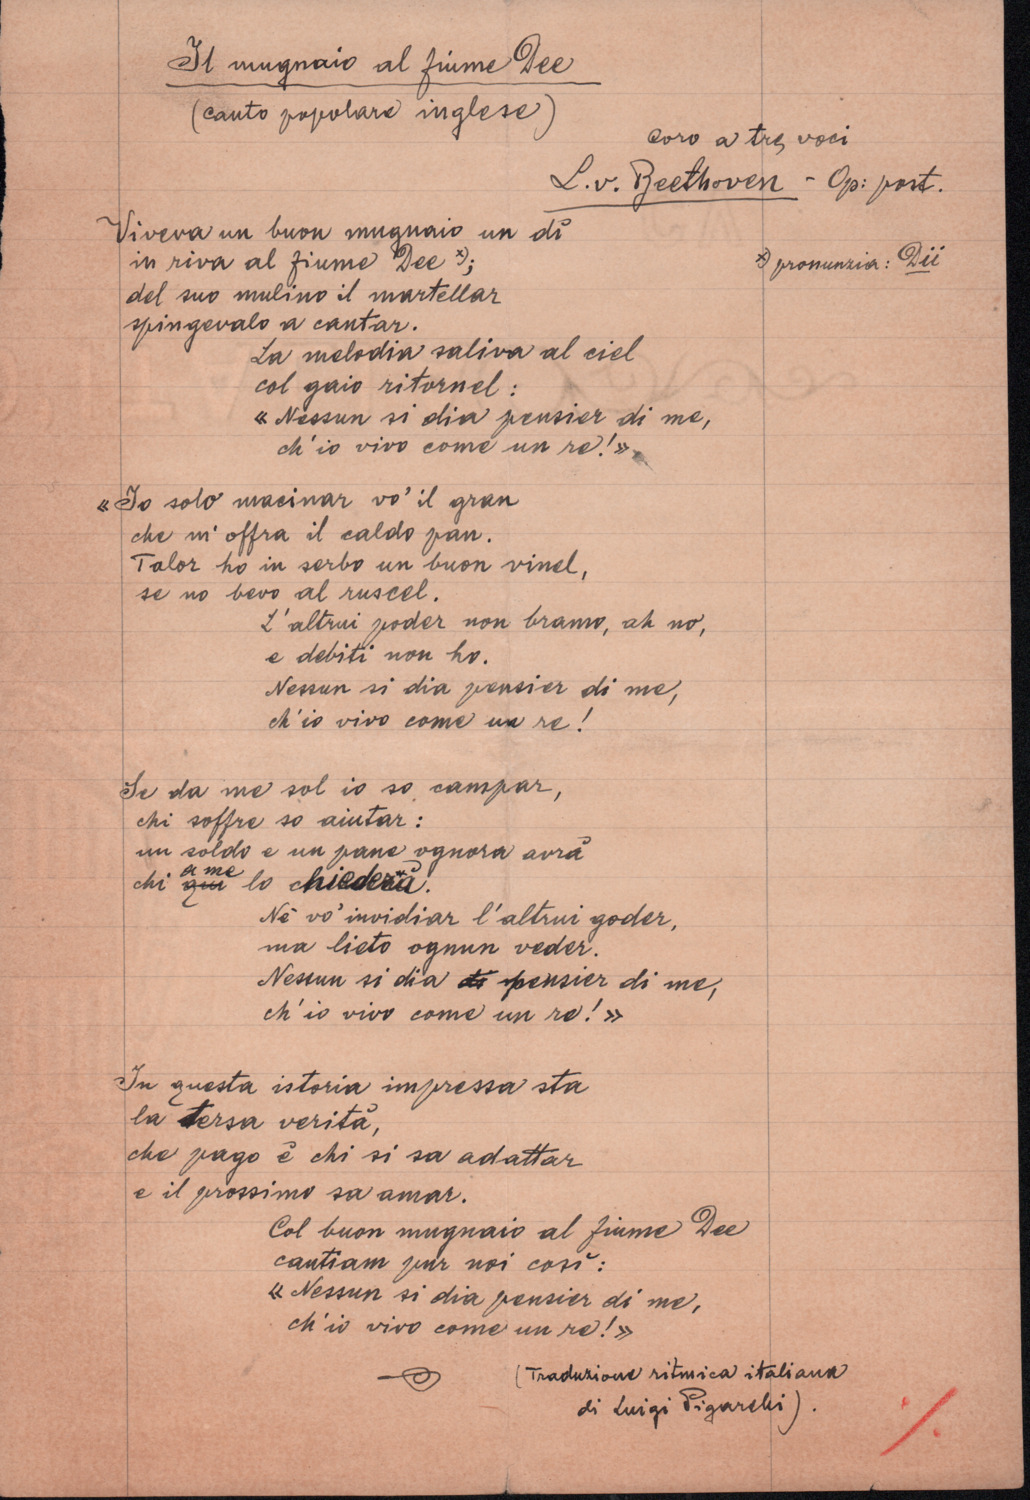 Il mugnaio al fiume Dee
(canto popolare inglese)
Coro a tre voci
L. v. Beethoven - Op: post.
Viveva un buon mugnaio un dì
in riva al fiume Dee *);
*) pronunzia: Dii
del suo mulino il martellar
spingevalo a cantar.
La melodia saliva al ciel
col gaio ritornel:
«Nessun si dia pensier di me,
ch'io vivo come un re!»
«Io solo macinar vo' il gran
che m'offra il caldo pan.
Talor ho in serbo un buon vinel,
se no bevo al ruscel.
L'altrui poder non bramo, ah no,
e debiti non ho.
Nessun si dia pensier di me,
ch'io vivo come un re!
Se da me sol io so campar,
chi soffre so aiutar:
un soldo e un pane ognora avrà
a me
chi qui lo chiederà.
Nè vo' invidiar l'altrui goder,
ma lieto ognun veder.
Nessun si dia di pensier di me,
ch'io vivo come un re!»
In questa istoria impressa sta
la tersa verità,
che pago è chi si sa adattar
e il prossimo sa amar.
Col buon mugnaio al fiume Dee
cantiam pur noi così:
«Nessun si dia pensier di me,
ch'io vivo come un re!»
(Traduzione ritmica italiana
di Luigi Pigarelli).
·/·